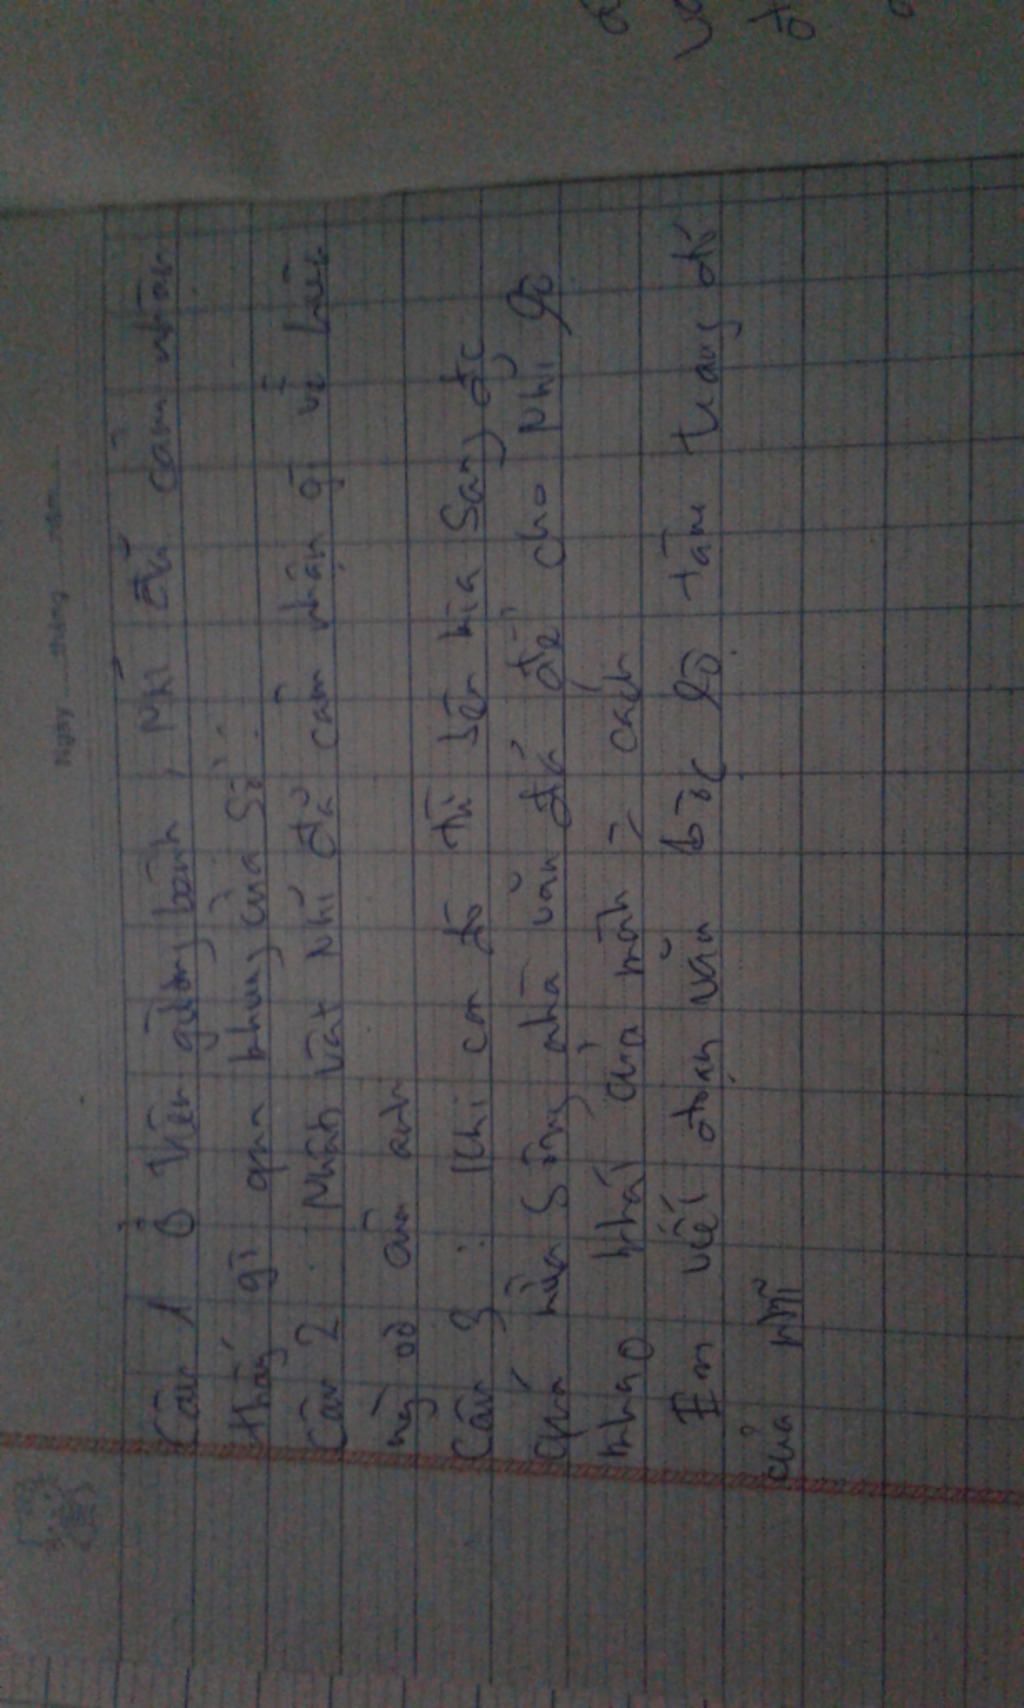 Ngày tháng năm
Câu 1 Ở trên giường bệnh, Nhĩ đã cảm nhận
thấy gì qua khung cửa sổ.
Câu 2. Nhân vật Nhĩ đã cảm nhận gì về hiện
ng vợ anh
Câu 3: Khi con đò từ bên kia sang đc
quá nửa sông nhà văn đã để cho Nhĩ
nhno khoát của mình cách
Em viết đoạn văn bộc lộ tâm trạng đó
của Nhĩ